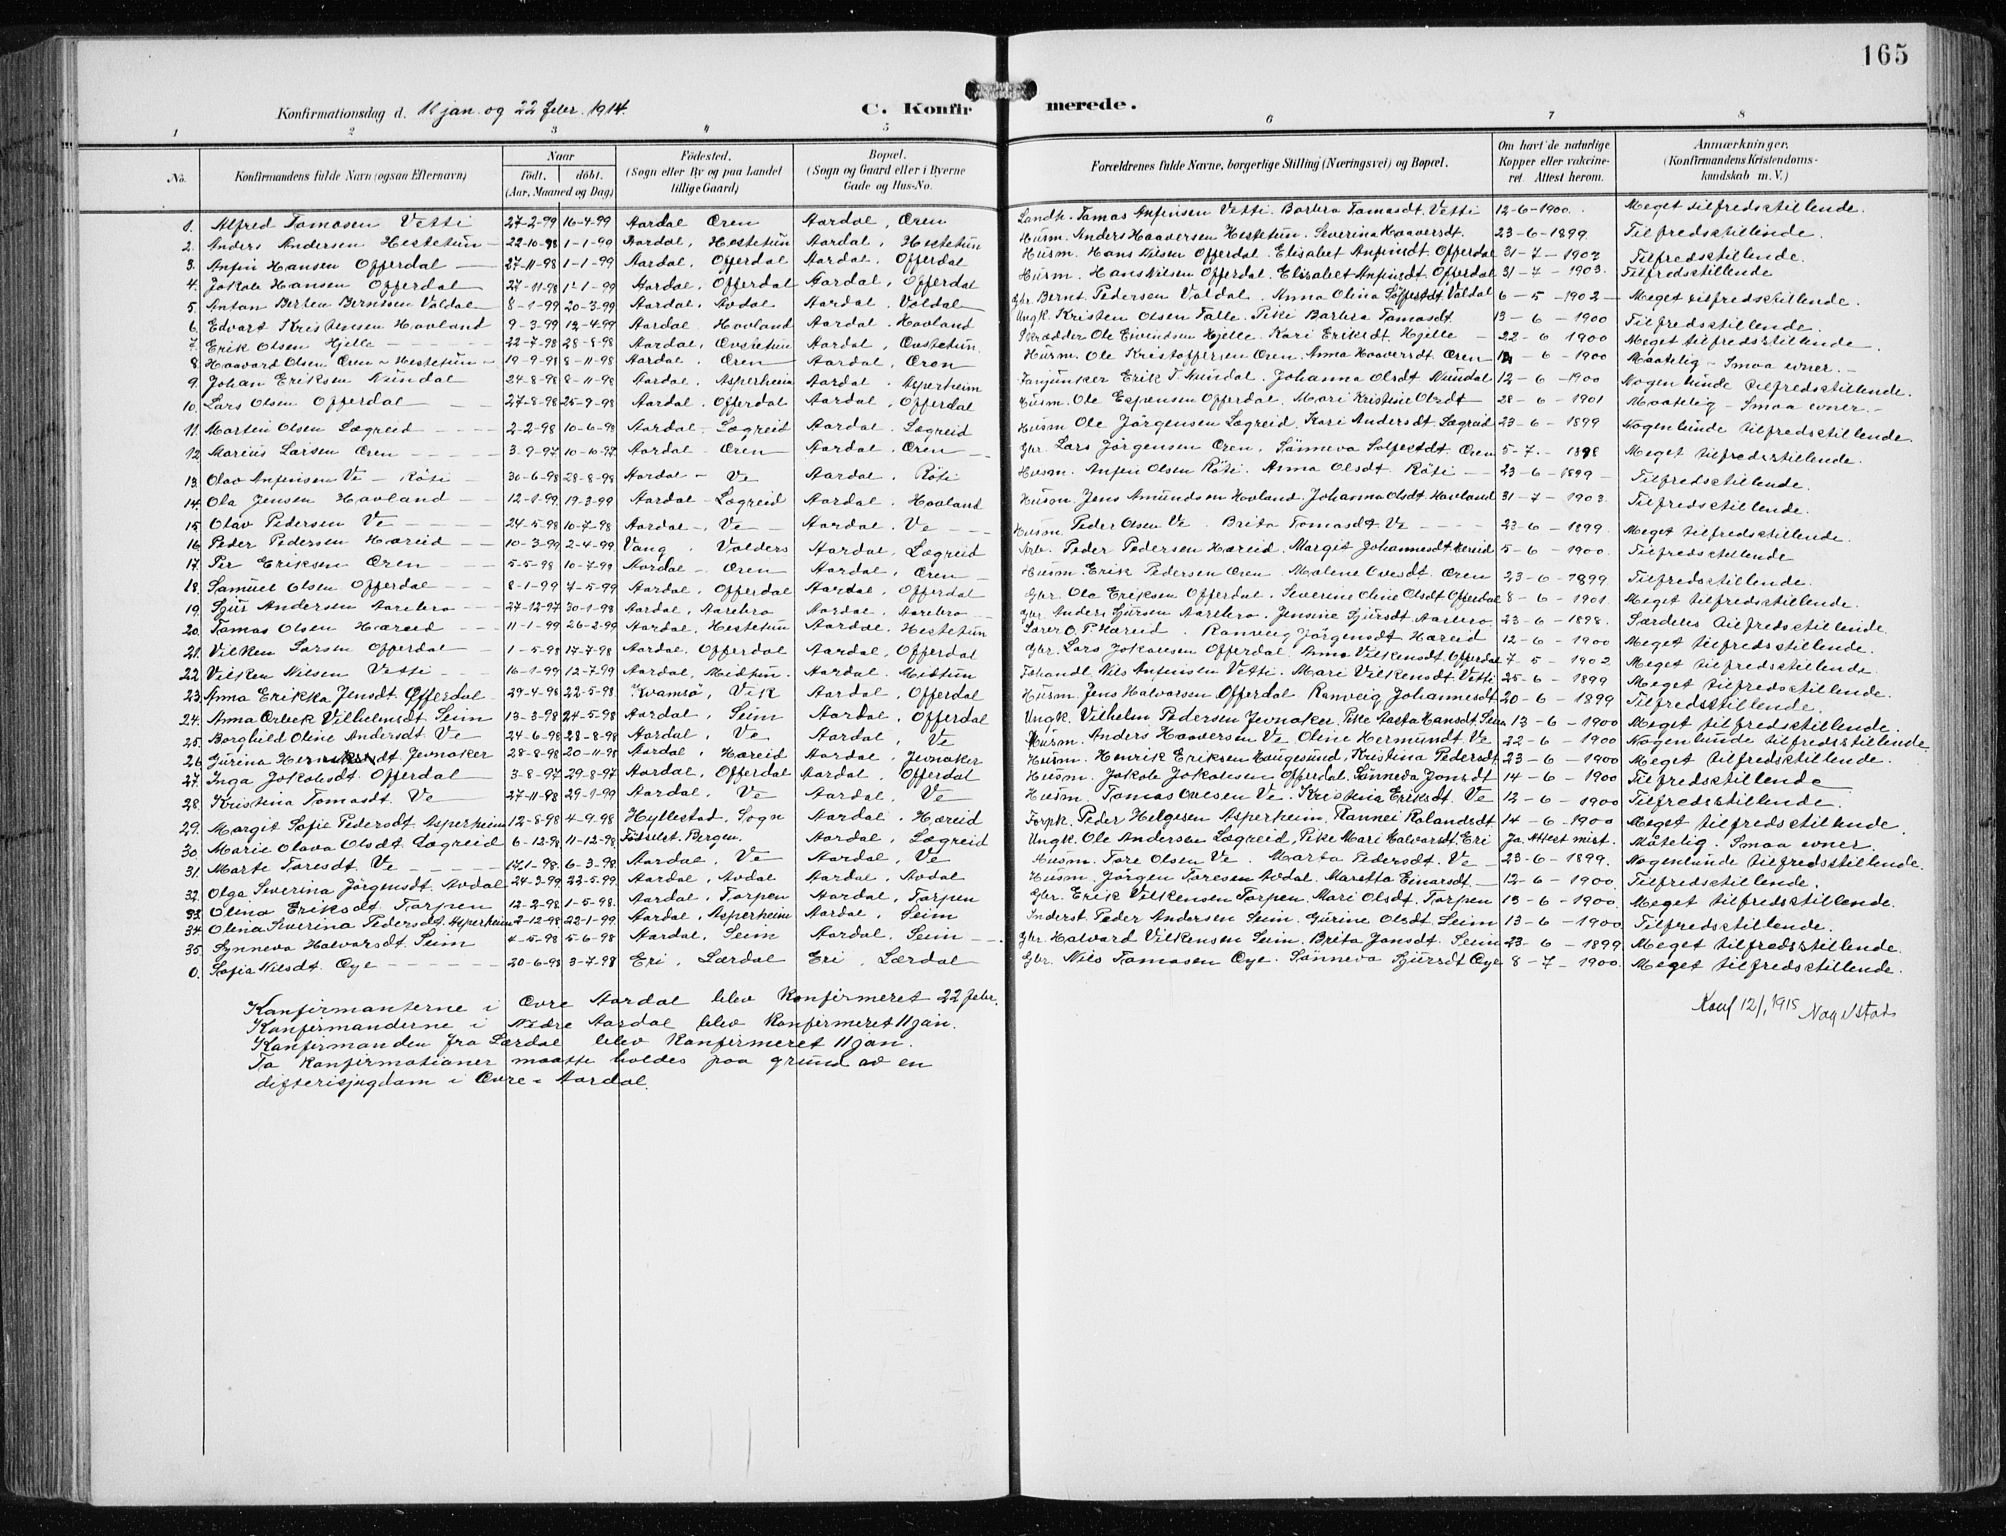 165
Konfirmationsdag d. 11 jan. og 22 febr. 1914.
C. Konfirmerede.
1 2 3 4 5 6 7 8
No. Konfirmandens fulde Navn (ogsaa Efternavn) Naar Födt. döbt. (Aar, Maaned og Dag) Födested. (Sogn eller By og paa Landet tillige Gaard) Bopæl. (Sogn og Gaard eller i Byerne Gade og Hus-No. Forældrenes fulde Navne, borgerlige Stilling (Næringsvei) og Bopæl. Om havt de naturlige Kopper eller vakcineret. Attest herom. Anmærkninger. (Konfirmandens Kristendomskundskab m. V.)
1. Alfred Tomasen Vetti 27-2-99 16-4-99 Aardal Øren Aardal, Øren Landh. Tomas Anfinsen Vetti. Barbra Tomasdt. Vetti 12-6-1900. Meget tilfredsstillende.
2. Anders Andersen Hestetun 22-10-98 1-1-99 Aardal, Hestetun Aardal, Hestetun Husm. Anders Haaversen Hestetun. Severina Haaversdt. 23-6-1899 Tilfredsstillende.
3. Anfin Hansen Offerdal 27-11-98 1-1-99 Aardal, Offerdal Aardal, Offerdal Husm. Hans Nilsen Offerdal. Elisabet Anfinsdt Offerdal 31-7-1903 Tilfredsstillende.
4. Jakob Hansen Offerdal 27-11-98 1-1-99 Aardal, Offerdal Aardal, Offerdal Husm. Hans Nilsen Offerdal. Elisabet Anfinsdt. Offerdal 31-7-1903. Tilfredsstillende
5. Anton Berben Berntsen Valdal 8-1-99 20-3-99 Aardal, Avdal Aardal. Valdal Gbr. Bernt Pedersen Valdal. Anna Olina Solfestdt. Valdal 6-5-1902 Meget tilfredsstillende.
6. Edvart Kristensen Hovland 9-3-99 12-4-99 Aardal, Hovland Aardal. Hovland Ungk. Kristen Olsen Talle. Pike Barbra Tomasdt. 13-6-1900 Tilfredsstillende.
7. Erik Olsen Hjelle 22-7-98 28-8-98 Aardal, Øvstetun Aardal, Øvstetun. Skrædder Ole Eivindsen Hjelle. Kari Eriksdt Hjelle 22-6 1900 Meget tilfredsstillende.
8 Haavard Olsen Øren - Hestetun 19-9-98 8-11-98 Aardal. Øren Aardal, Øren Husm. Ole Kristoffersen Øren. Anna Haaversdt. Øren 12-6-1900 Maatelig - Smaa evner.
9. Johan Eriksen Nundal 24-8-98 8-11-98 Aardal, Asperheim Aardal. Asperheim Fanjunker Erik T Nundal. Johanna Olsdt Nundal 12-6-1900 Nogenlunde tilfredsstillende.
10. Lars Olsen Offerdal 27-8-98 25-9-98 Aardal, Offerdal Aardal, Offerdal Husm. Ole Espensen Offerdal. Mari Kristine Olsdt 28-6-1901 Maatelig - Smaa evner.
11. Martin Olsen Lægreid 2-2-98 10-6-98 Aardal - Lægreid Aardal. Lægreid Husm Ole Jørgensen Lægreid. Kari Andersdt Lægreid 23-6-1899 Nogenlunde tilfredsstillende.
12. Marius Larsen Øren 3-9-97 10-10-97 Aardal - Øren Aardal. Øren Gbr. Lars Jørgensen Øren. Sønneva Solfestdt. Øren 5-7-1898 Meget tilfredsstillende.
13. Olav Anfinsen Ve - Røti 30-6-98 28-8-98 Aardal - Ve Aardal, Røti Husm. Anfin Olsen Røti. Anna Olsdt. Røti 23-6-1899 Tilfredsstillende.
14. Ola Jensen Hovland 12-1-99 19-3-99 Aardal - Lægreid Aardal. Hovland Husm. Jens Amundsen Hovland. Johanna Olsdt Hovland 31-7-1903. Tilfredsstillende.
15. Olav Pedersen Ve 24-5-98 10-7-98 Aardal -. Ve Aardal. Ve Husm. Peder Olsen Ve. Brita Tomasdt. Ve 23-6-1899. Meget tilfredsstillende.
16. Peder Pedersen Hæreid 10-3-99 2-4-99 Vang. Valders Aardal. Lægreid Arb. Peder Pedersen Hæreid. Margit Johannesdt Hereid 5-6-1900. Tilfredsstillende
17. Per Eriksen Øren 5-5-98 10-7-98 Aardal - Øren Aardal. Øren Husm. Erik Pedersen Øren. Malene Ovesdt. Øren 23-6-1899 Tilfredsstillende.
18. Samuel Olsen Offerdal 8-1-99 7-5-99 Aardal, Offerdal Aardal, Offerdal Gbr. Ole Eriksen Offerdal. Severine Oline Olsdt Offerdal 8-6-1901. Meget tilfredsstillende.
19. Sjur Andersen Aarebro 27-12-97 30-1-98 Aardal, Aarebro Aardal. Aarebro Gbr. Anders Sjursen Aarebro. Jensine Sjursdt Aarbro. 23-6-1898. Særdeles tilfredsstillende.
20. Tomas Olsen Hæreid 11-1-99 26-2-99 Aardal. Hestetun Aardal. Hestetun Lærer O. P. Hæreid. Ranveig Jørgensdt Hæreid 12-6-1900 Meget tilfredsstillende.
21. Vilken Larsen Offerdal 1-5-98 17-7-98 Aardal, Offerdal Aardal, Offerdal Gbr. Lars Jakobsen Offerdal. Anna Vilkensdt. Offerdal 7-5-1902 Meget tilfredsstillende
22 Vilken Nilsen Vetti 16-1-99 12-7-99 Aardal, Midtun. Aardal. Midtun Fehandl. Nils Anfinsen Vetti. Mari Vilkensdt. Vetti 25-6-1899 Meget tilfredsstillende.
23. Anna Erikka Jensdt. Offerdal 29-4-98 22-5-98 Kvamsø, Vik Aardal, Offerdal Husm. Jens Halvorsen Offerdal Ranveig Johannesdt. 20-6-1899 Tilfredsstillende.
24. Anna Ørbeck Vilhelmsdt. Seim 13-3-98 24-5-98 Aardal, Seim Aardal, Offerdal Ungk. Vilhelm Pedersen Jevnaker. Pike Aasta Hansdt. Seim 13-6-1900. Meget tilfredsstillende.
25. Borghild Oline Andersdt. Ve 24-6-98 28-8-98 Aardal, Ve Aardal, Ve Husm. Anders Haaversen Ve Oline Hermundt Ve 22-6-1900 Nogenlunde tilfredsstillende
26 Gurina Henriksdt Jevnaker 28-8-98 20-11-98 Aardal, Hæreid Aardal, Jevnaker Husm. Henrik Eriksen Haugesund, Kristina Pedersdt 23-6-1900 Meget tilfredsstillende.
27. Inga Jakobsdt. Offerdal 3-8-97 29-8-97 Aardal, Offerdal Aardal, Offerdal Husm. Jakob Jakobsen Offerdal. Sønneva Jonsdt 14-6-1900 Tilfredsstillende
28. Kristina Tomasdt. Ve 27-11-98 29-1-99 Aardal, Ve Aardal. Ve Husm. Tomas Ovesen Ve. Kristina Eriksdt. Ve 12-6-1900 Tilfredsstillende.
29. Margit Sofie Pedersdt. Asperheim 12-8-98 4-9-98 Hyllestad. Sogn Aardal. Hæreid Forpk. Peder Helgesen Asperheim, Rannei Rolandsdt 14-6-1900 Meget tilfredsstillende.
30. Marie Olava Olsdt. Lægreid 6-12-98 11-12-98 Fødselst. Bergen Aardal, Lægreid Ungk. Ole Andersen Lægreid, Pike Mari Halvorsdt. Eri Ja. Attest mist. Måtelig. Smaa evner.
31. Marte Toresdt. Ve 17-1-98 6-3-98 Aardal, Ve Aardal. Ve Husm. Tore Olsen Ve. Marta Pedersdt. Ve 23-6-1899. Nogenlunde tilfredsstillende.
32. Olga Severina Jørgensdt. Avdal 24-3-99 22-5-99 Aardal, Avdal Aardal. Avdal Husm. Jørgen Toresen Avdal. Maretta Einarsdt. 12-6-1900. Tilfredsstillende.
33. Olina Eriksdt. Torpen 12-2-98 1-5-98 Aardal, Torpen Aardal. Torpen Gbr. Erik Vilkensen Torpen. Mari Olsdt. Torpen 13-6-1900. Meget tilfredsstillende.
34. Olina Severina Pedersdt. Asperheim 2-12-98 22-1-99 Aardal, Asperheim Aardal. Seim Inderst. Peder Andersen Seim. Gurine Olsdt. Seim 13-6-1900 Tilfredsstillende.
35. Synneva Halvarsdt. Seim 4-5-98 5-6-98 Aardal. Seim Aardal. Seim Gbr. Halvard Vilkensen Seim. Brita Jonsdt. Seim 23-6-1899 Meget tilfredsstillende.
0. Sofia Nilsdt. Øye 20-6-98 3-7-98 Eri, Lærdal Eri, Lærdal Gbr. Nils Tomasen Øye. Sønneva Sjursdt Øye 8-7-1900. Meget tilfredsstillende.
Konfirmanterne i Øvre Aardal blev Konfirmeret 22 febr.
Konfirmanderne i Nedre Aardal blev Konfirmeret 11 jan.
Konfirmanden fra Lærdal blev Konfirmeret 11 jan.
To Konfirmationer maatte holdes paa grund av en
difterisjugdom i Øvre-Aardal.
Konf 12/1 1915